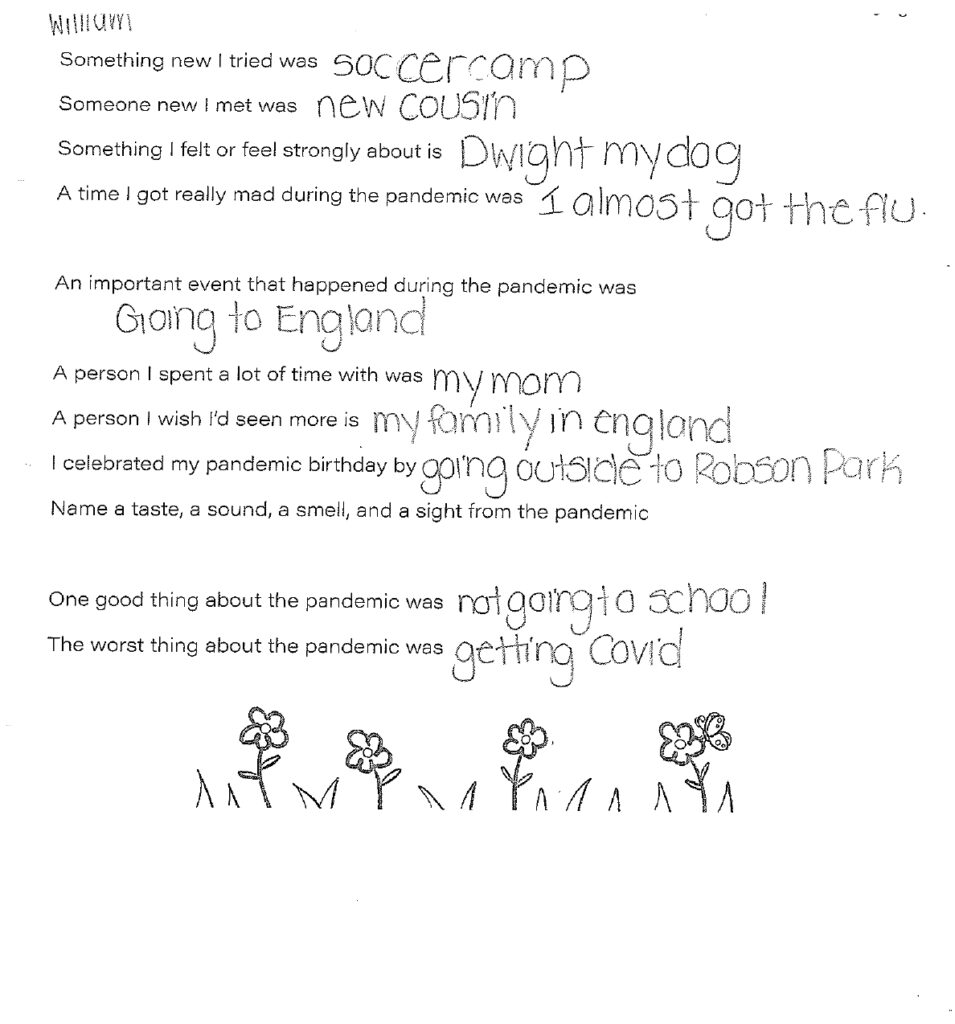 William
Something new I tried was soccer camp
Someone new I met was new cousin
Something I felt or feel strongly about is Dwight my dog
A time I got really mad during the pandemic was I almost got the flu.
An important event that happened during the pandemic was
Going to England
A person I spent a lot of time with was my mom
A person I wish I'd seen more is my family in england
I celebrated my pandemic birthday by going outside to Robson Park
Name a taste, a sound, a smell, and a sight from the pandemic
One good thing about the pandemic was not going to school
The worst thing about the pandemic was getting Covid